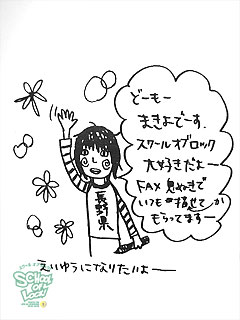 どーもー
まきよでーす.
スクールオブロック
大好きだよー
FAX 見ぬきで
いつも描せてが
もらってますー
長野県
えいゆうになりたいよ——
SCHOOL
OF
LOCK!